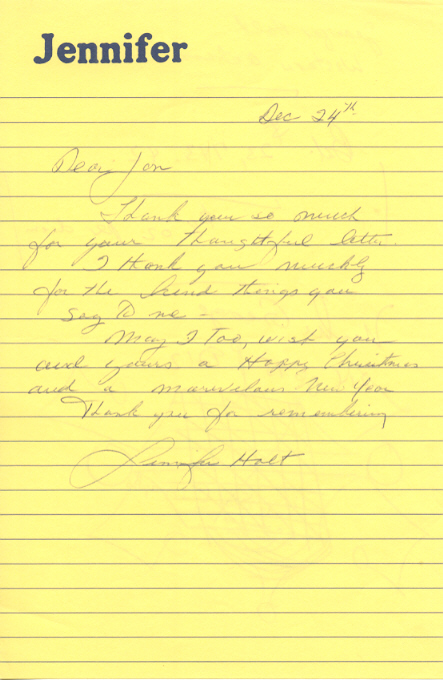 Jennifer
Dec 24th
Dear Jon
Thank you so much
for your thoughtful letter.
I thank you muchly
for the kind things you
say to me -
May I too, wish you
and yours a Happy Christmas
and a marvelous New Year
Thank you for remembering
Jennifer Holt